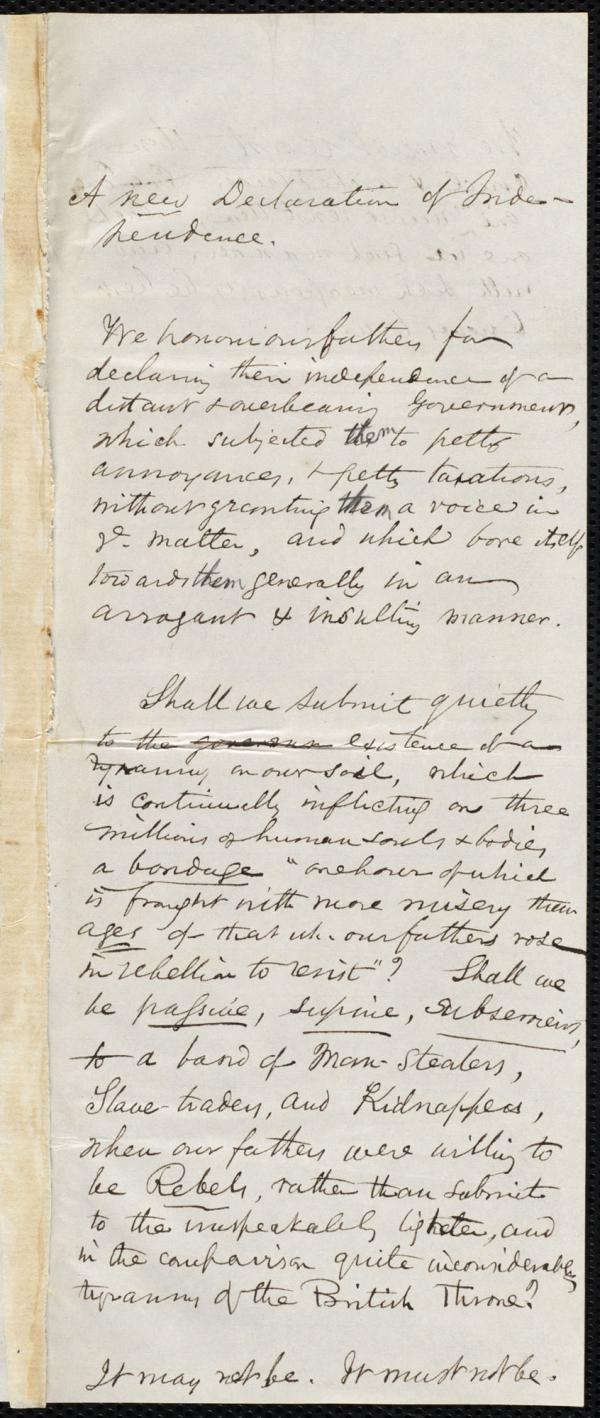 A new Declaration of Inde-
pendence.
We honor our fathers for
declaring their independence of a
distant & overbearing Government,
which subjected them to petty
annoyances, & petty taxations,
without granting them a voice in
ye. matter, and which bore itself
towards them generally in an
arrogant & insulting manner.
Shall we submit quietly
to the existence of a
tyranny on our soil, which
is continually inflicting on three
millions of human souls & bodies
a bondage "one hour of which
is fraught with more misery than
ages of that wh. our fathers rose
in rebellion to resist"? Shall we
be passive, supine, subservient,
to a band of Man-Stealers,
Slave-traders, and Kidnappers,
when our fathers were willing to
be Rebels, rather than submit
to the unspeakably lighter, and
in the comparison quite inconsiderable,
tyranny of the British Throne?
It may not be. It must not be.